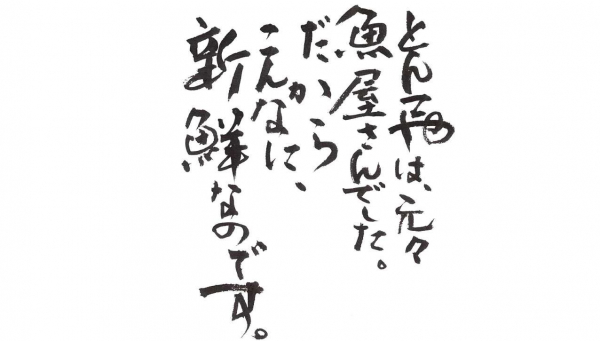 とん は、元々
魚屋さんでした。
だから
こんなに、
新鮮なのです。